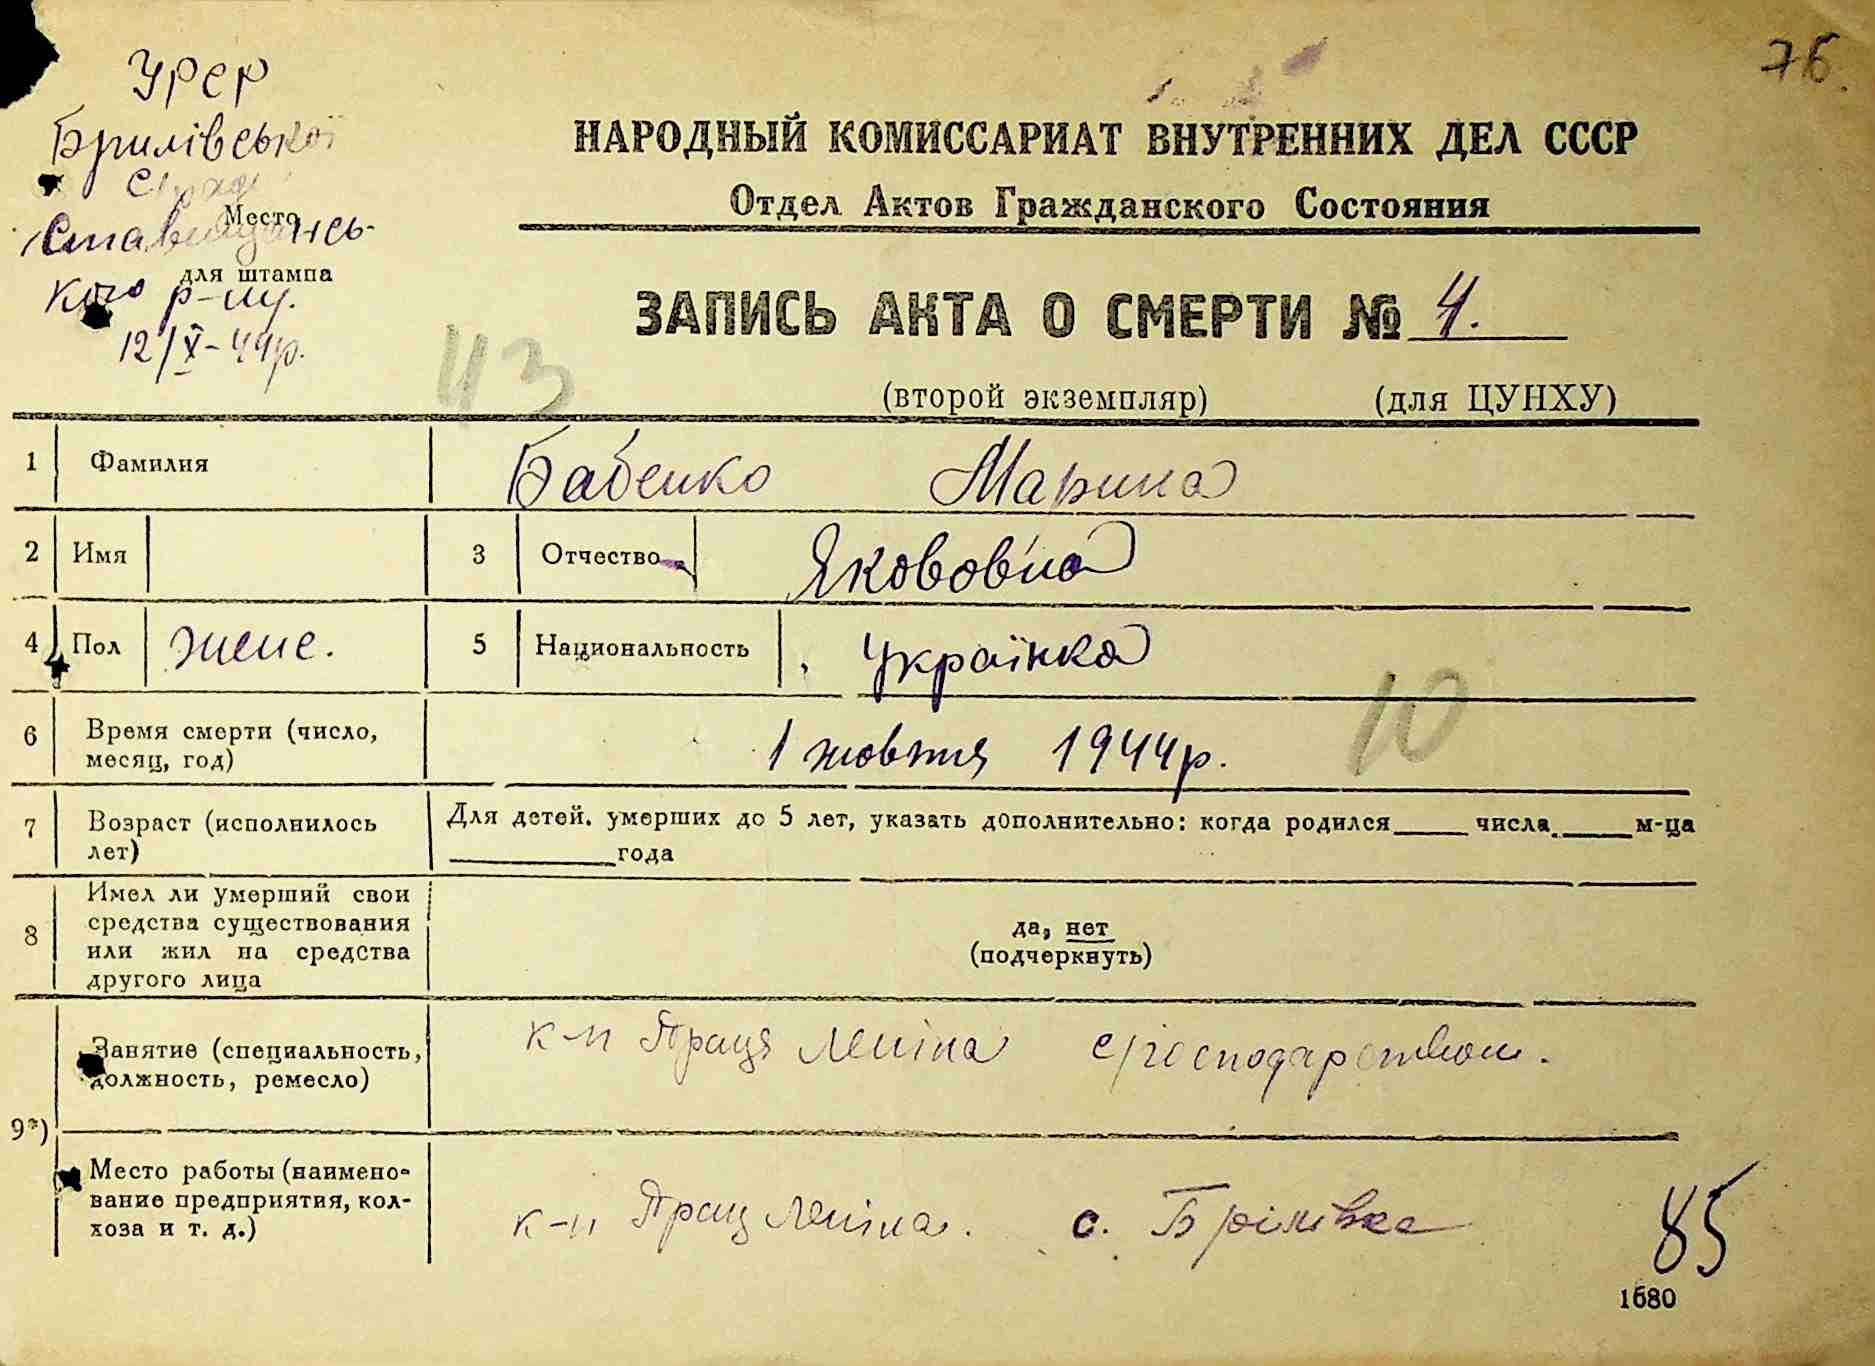 76.
УРСР
Брилівської
сільради
Ставищансь-
кого р-ну.
12/X-44р.
Место
для штампа
НАРОДНЫЙ КОМИССАРИАТ ВНУТРЕННИХ ДЕЛ СССР
Отдел Актов Гражданского Состояния
ЗАПИСЬ АКТА О СМЕРТИ № 4.
43
(второй экземпляр) (для ЦУНХУ)
1 Фамилия Бабенко Марина
2 Имя 3 Отчество Якововна
4 Пол женс. 5 Национальность Українка
10
6 Время смерти (число,
месяц, год) 1 жовтня 1944р.
7 Возраст (исполнилось
лет) Для детей. умерших до 5 лет, указать дополнительно: когда родился числа м-ца
года
8 Имел ли умерший свои
средства существования
или жил на средства
другого лица
да, нет
(подчеркнуть)
9*)
Занятие (специальность,
должность, ремесло) к-п Праця Леніна с/господарством.
Место работы (наимено-
вание предприятия, кол-
хоза и т. д.) к-п Прац Леніна. с. Брілівка
85
1680